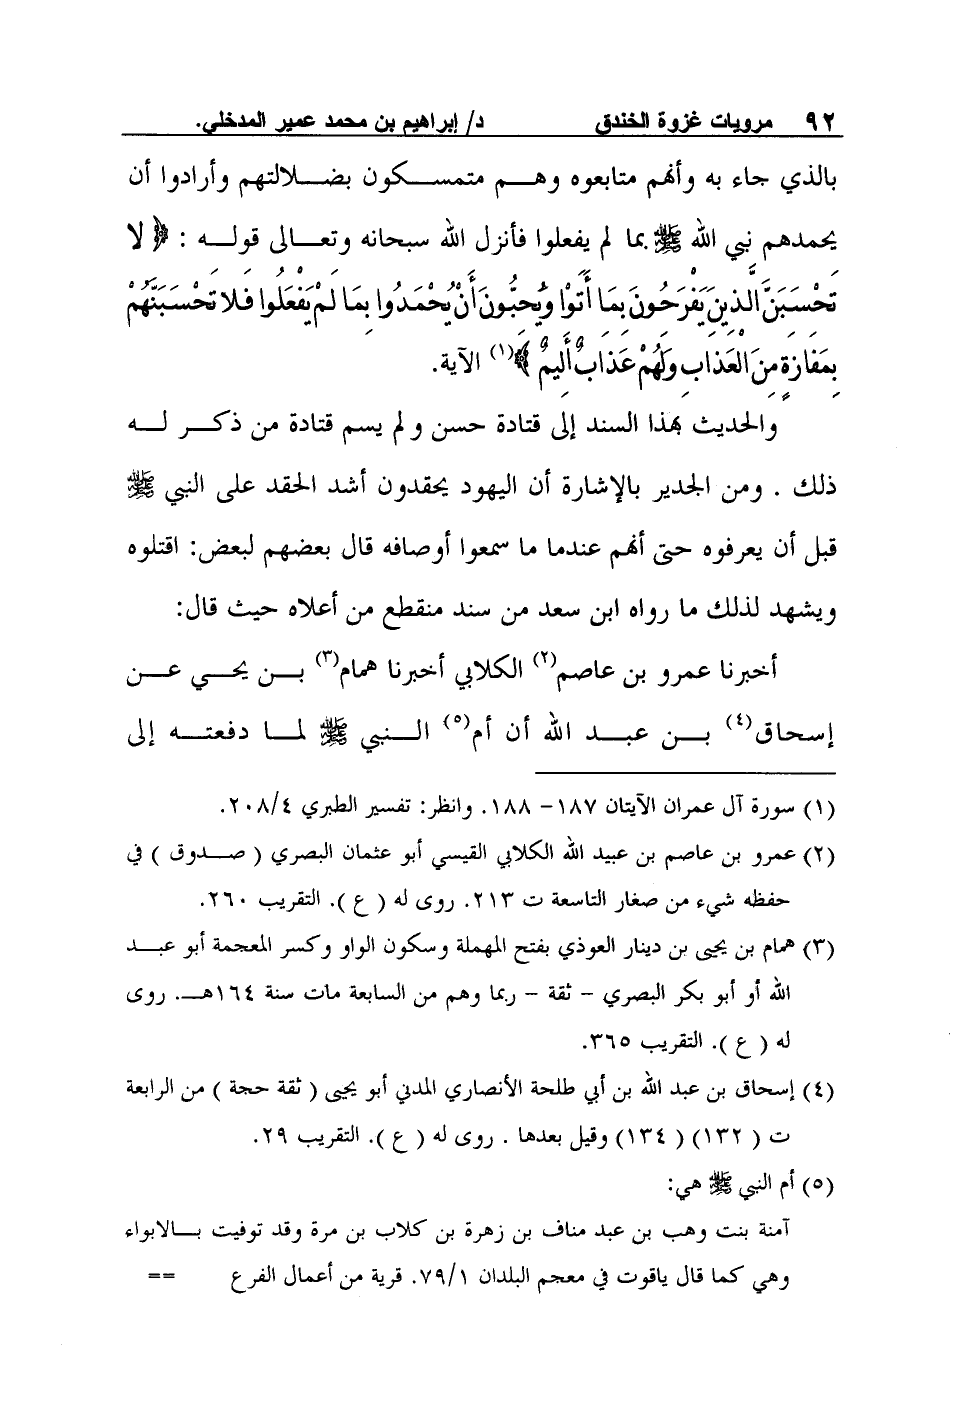 ٩٢ مرويات غزوة الخندق د/ إبراهيم بن محمد عمير المدخلي.
بالذي جاء به وأنهم متابعوه وهم متمسكون بضلالتهم وأرادوا أن
يحمدهم نبي الله ﷺ بما لم يفعلوا فأنزل الله سبحانه وتعالى قوله : ﴿ لا
تَحْسَبَنَّ الَّذِينَ يَفْرَحُونَ بِمَا أَتَوْا وَيُحِبُّونَ أَنْ يُحْمَدُوا بِمَا لَمْ يَفْعَلُوا فَلا تَحْسَبَنَّهُمْ
بِمَفَازَةٍ مِنَ الْعَذَابِ وَلَهُمْ عَذَابٌ أَلِيمٌ ﴾(١) الآية.
والحديث بهذا السند إلى قتادة حسن ولم يسم قتادة من ذكر له
ذلك . ومن الجدير بالإشارة أن اليهود يحقدون أشد الحقد على النبي ﷺ
قبل أن يعرفوه حتى أنهم عندما ما سمعوا أوصافه قال بعضهم لبعض: اقتلوه
ويشهد لذلك ما رواه ابن سعد من سند منقطع من أعلاه حيث قال:
أخبرنا عمرو بن عاصم(٢) الكلابي أخبرنا همام(٣) بن يحي عن
إسحاق(٤) بن عبد الله أن أم(٥) النبي ﷺ لما دفعته إلى
(١) سورة آل عمران الآيتان ١٨٧- ١٨٨. وانظر: تفسير الطبري ٢٠٨/٤.
(٢) عمرو بن عاصم بن عبيد الله الكلابي القيسي أبو عثمان البصري ( صدوق ) في
حفظه شيء من صغار التاسعة ت ٢١٣. روى له ( ع ). التقريب ٢٦٠.
(٣) همام بن يحيى بن دينار العوذي بفتح المهملة وسكون الواو وكسر المعجمة أبو عبد
الله أو أبو بكر البصري - ثقة - ربما وهم من السابعة مات سنة ١٦٤هـ. روى
له ( ع ). التقريب ٣٦٥.
(٤) إسحاق بن عبد الله بن أبي طلحة الأنصاري المدني أبو يحيى ( ثقة حجة ) من الرابعة
ت ( ١٣٢) ( ١٣٤) وقيل بعدها . روى له ( ع ). التقريب ٢٩.
(٥) أم النبي ﷺ هي:
آمنة بنت وهب بن عبد مناف بن زهرة بن كلاب بن مرة وقد توفيت بالابواء
وهي كما قال ياقوت في معجم البلدان ٧٩/١. قرية من أعمال الفرع ==